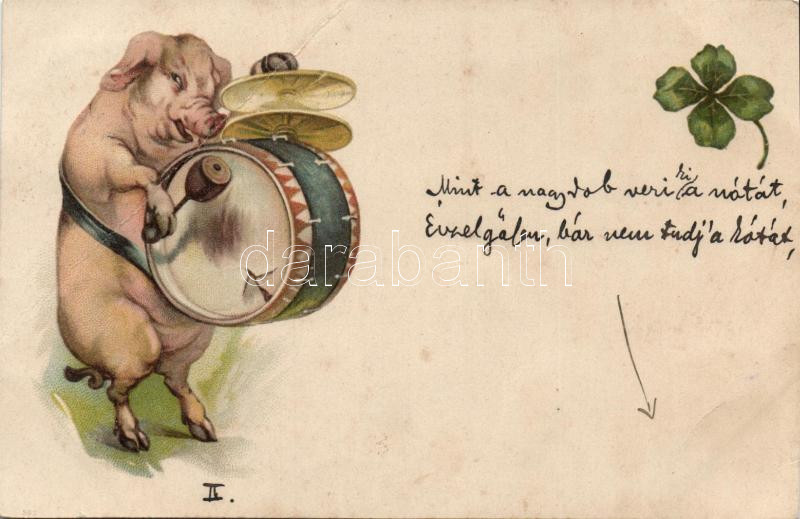 Mint a nagydob veri ki a nótát,
bár nem tudj' a kótát,
darabanth
II.